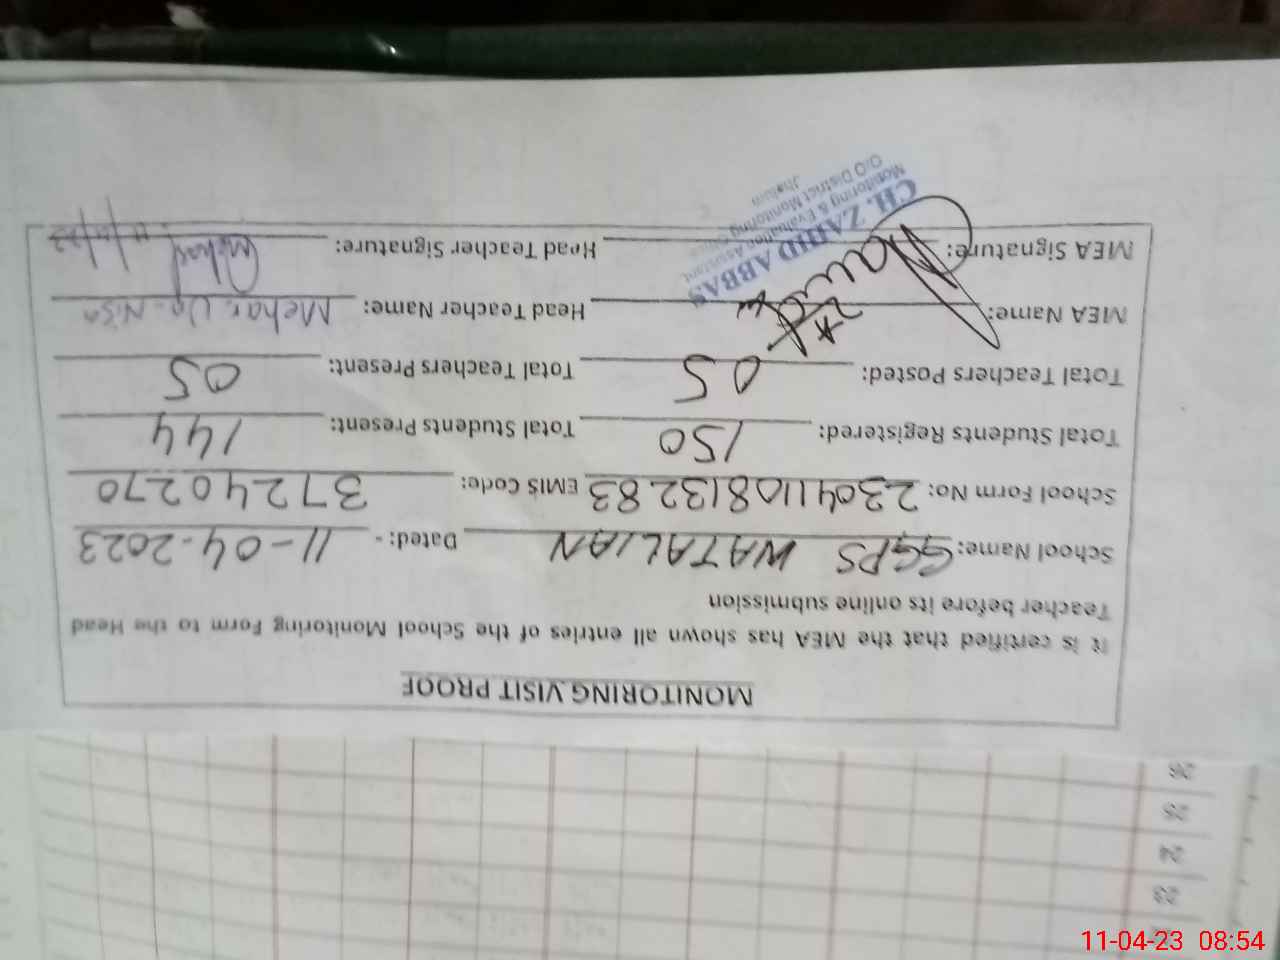 MONITORING VISIT PROOF
It is certified that the MEA has shown all entries of the School Monitoring Form to the Head
Teacher before its online submission
School Name: GGPS WATALIAN Dated: - 11-04-2023
School Form No: 2304110813283 EMIS Code: 37240270
Total Students Registered: 150 Total Students Present: 144
Total Teachers Posted: 05 Total Teachers Present: 05
MEA Name: Head Teacher Name: Mehar Un-Nisa
MEA Signature: Head Teacher Signature: Mehar 11/4/23
CH. ZAHID ABBAS
Monitoring & Evaluation Assistant
O/O District Monitoring Office
Jhelum
26
25
24
23
11-04-23 08:54